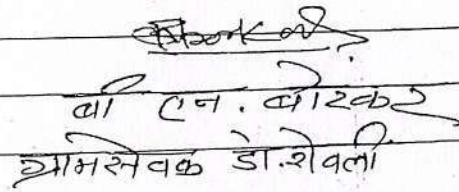 बी एन. बोरकर
ग्रामसेवक डों.शेवली